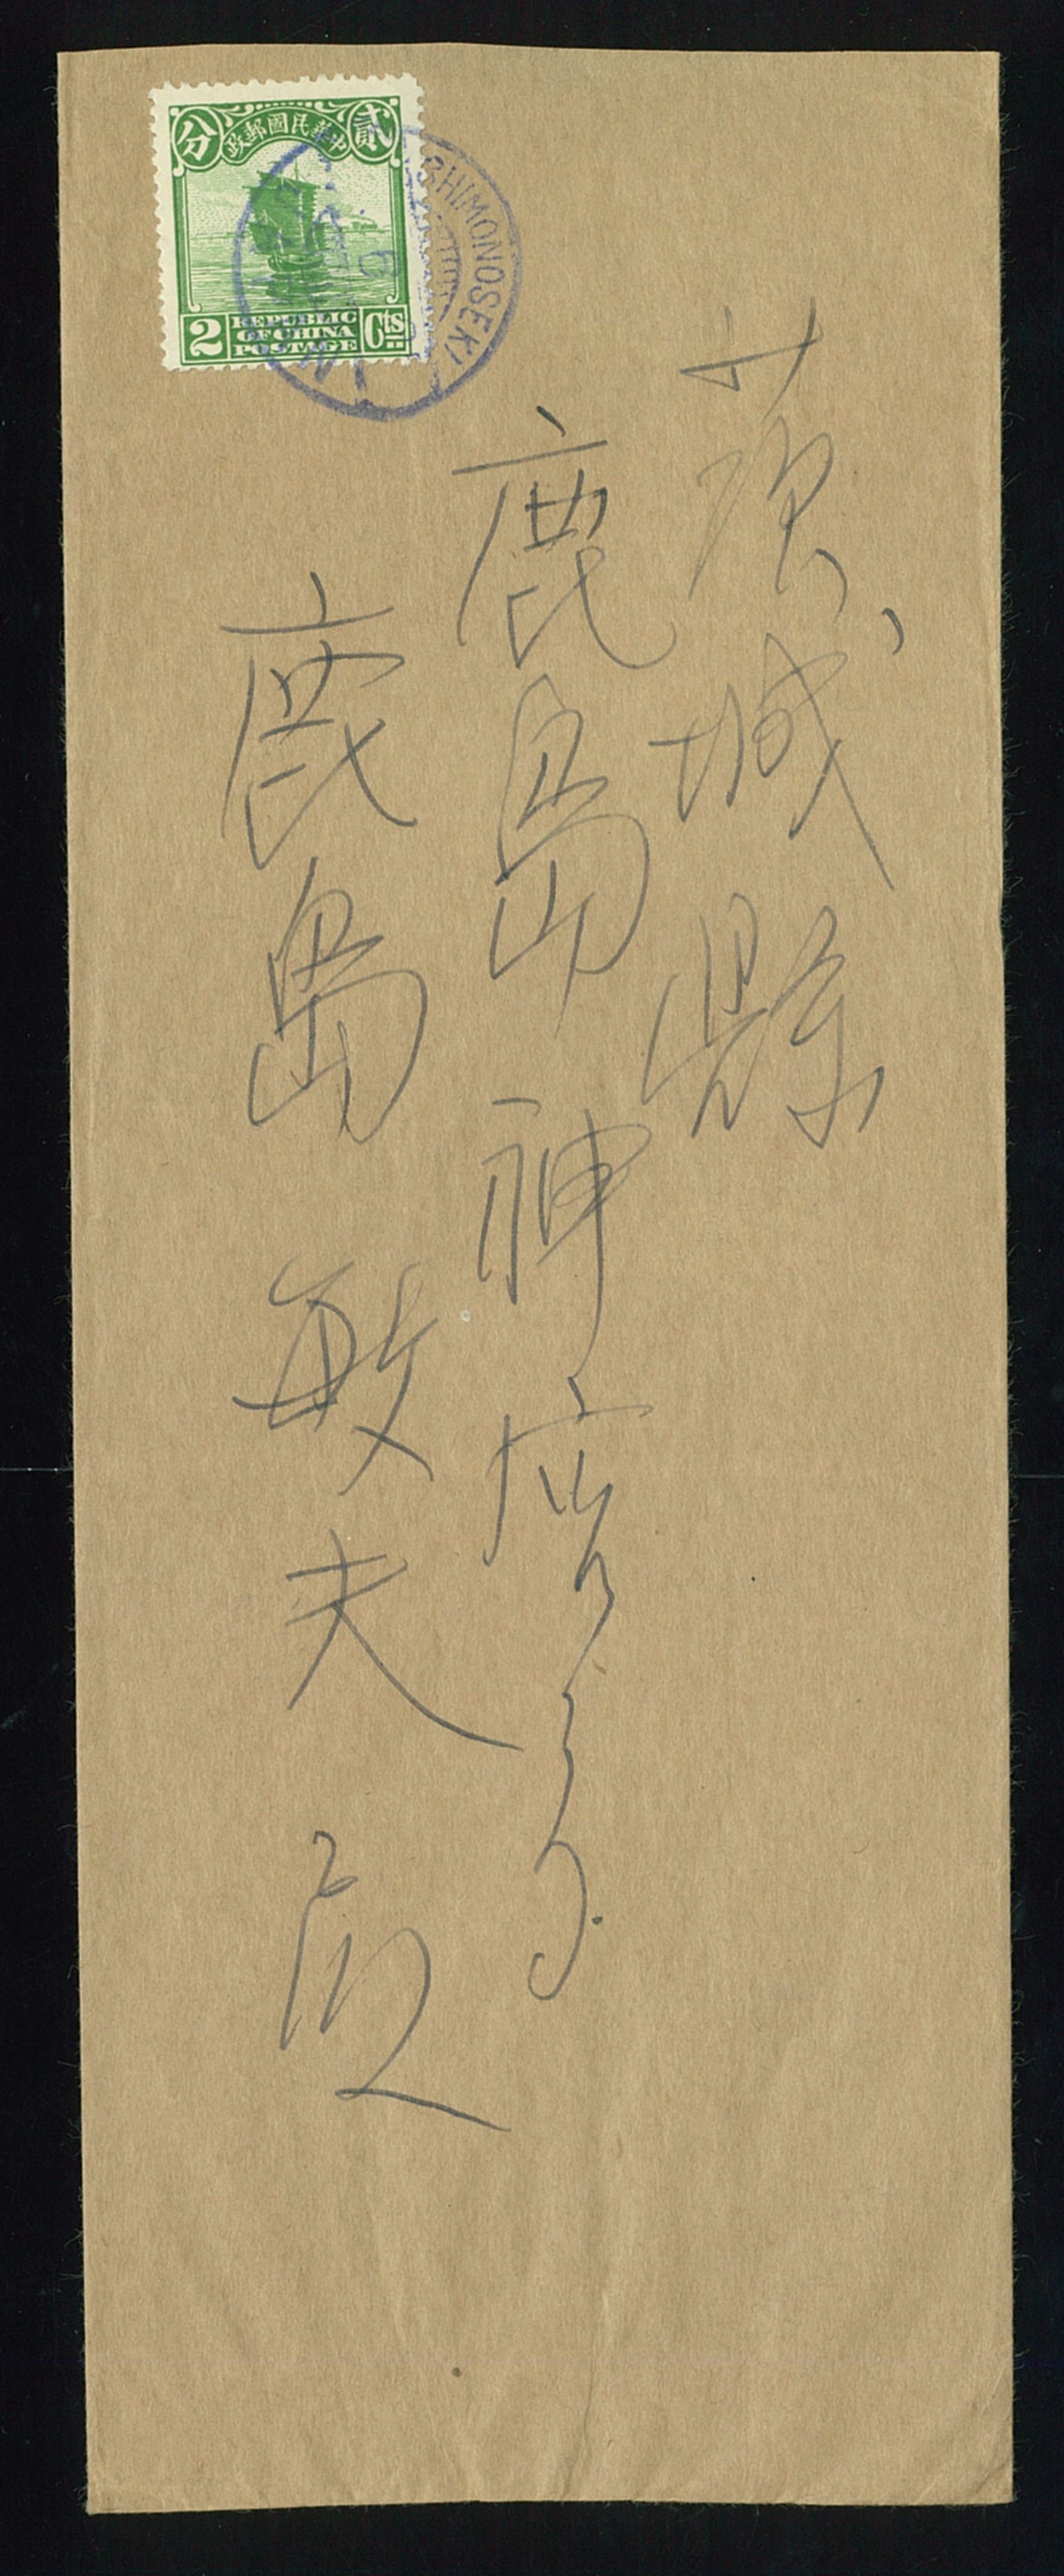 中華民國郵政
貳
分
2
REPUBLIC
OF CHINA
POSTAGE
Cts
SHIMONOSEKI
茨城縣
鹿島神宮
鹿島敏夫殿